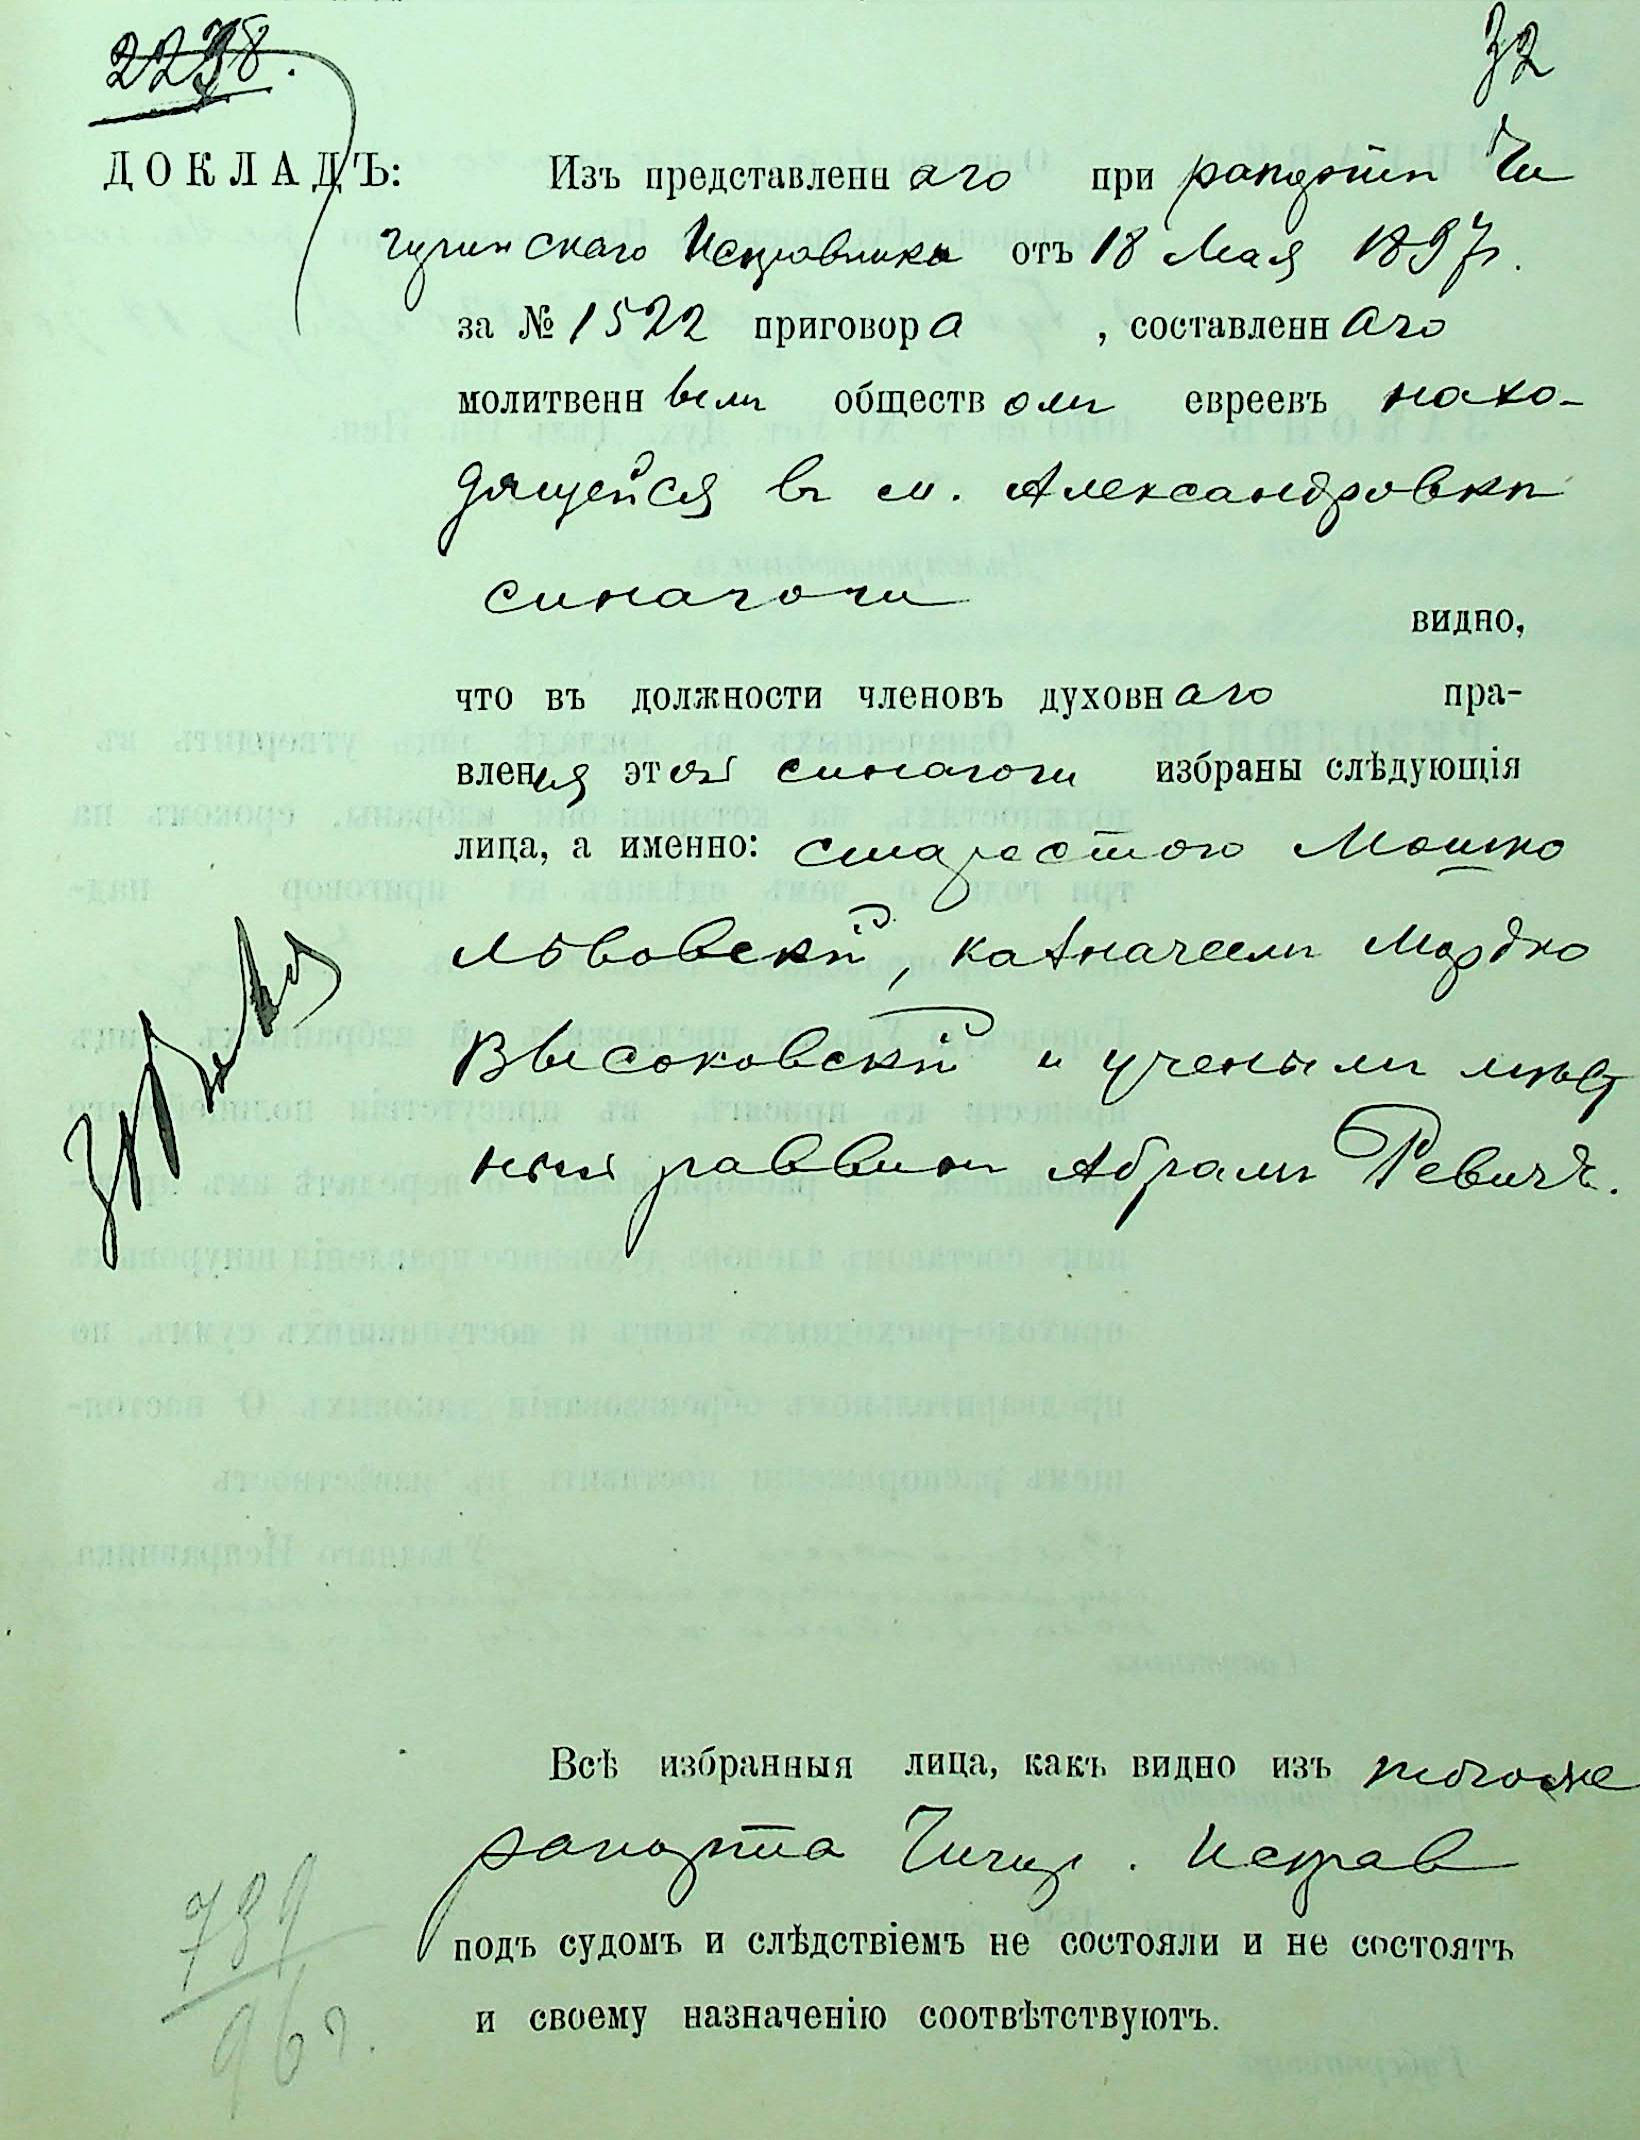 2298.
32
ДОКЛАДЪ: Изъ представленнаго при рапортѣ Чи
гиринскаго Исправника отъ 18 Мая 1897 г.
за № 1522 приговора, составленнаго
молитвеннымъ обществомъ евреевъ нахо-
дящейся въ м. Александровкѣ
синагоги
видно,
что въ должности членовъ духовнаго пра-
вленія этой синагоги избраны слѣдующія
лица, а именно: старостою Мошко
Львовскій, казначеемъ Мордко
Высоковскій и ученымъ мѣст
ный раввинъ Абрамъ Ревичъ.
Всѣ избранныя лица, какъ видно изъ того же
рапорта Чигир. Исправ
подъ судомъ и слѣдствіемъ не состояли и не состоятъ
и своему назначенію соотвѣтствуютъ.
789
96 г.